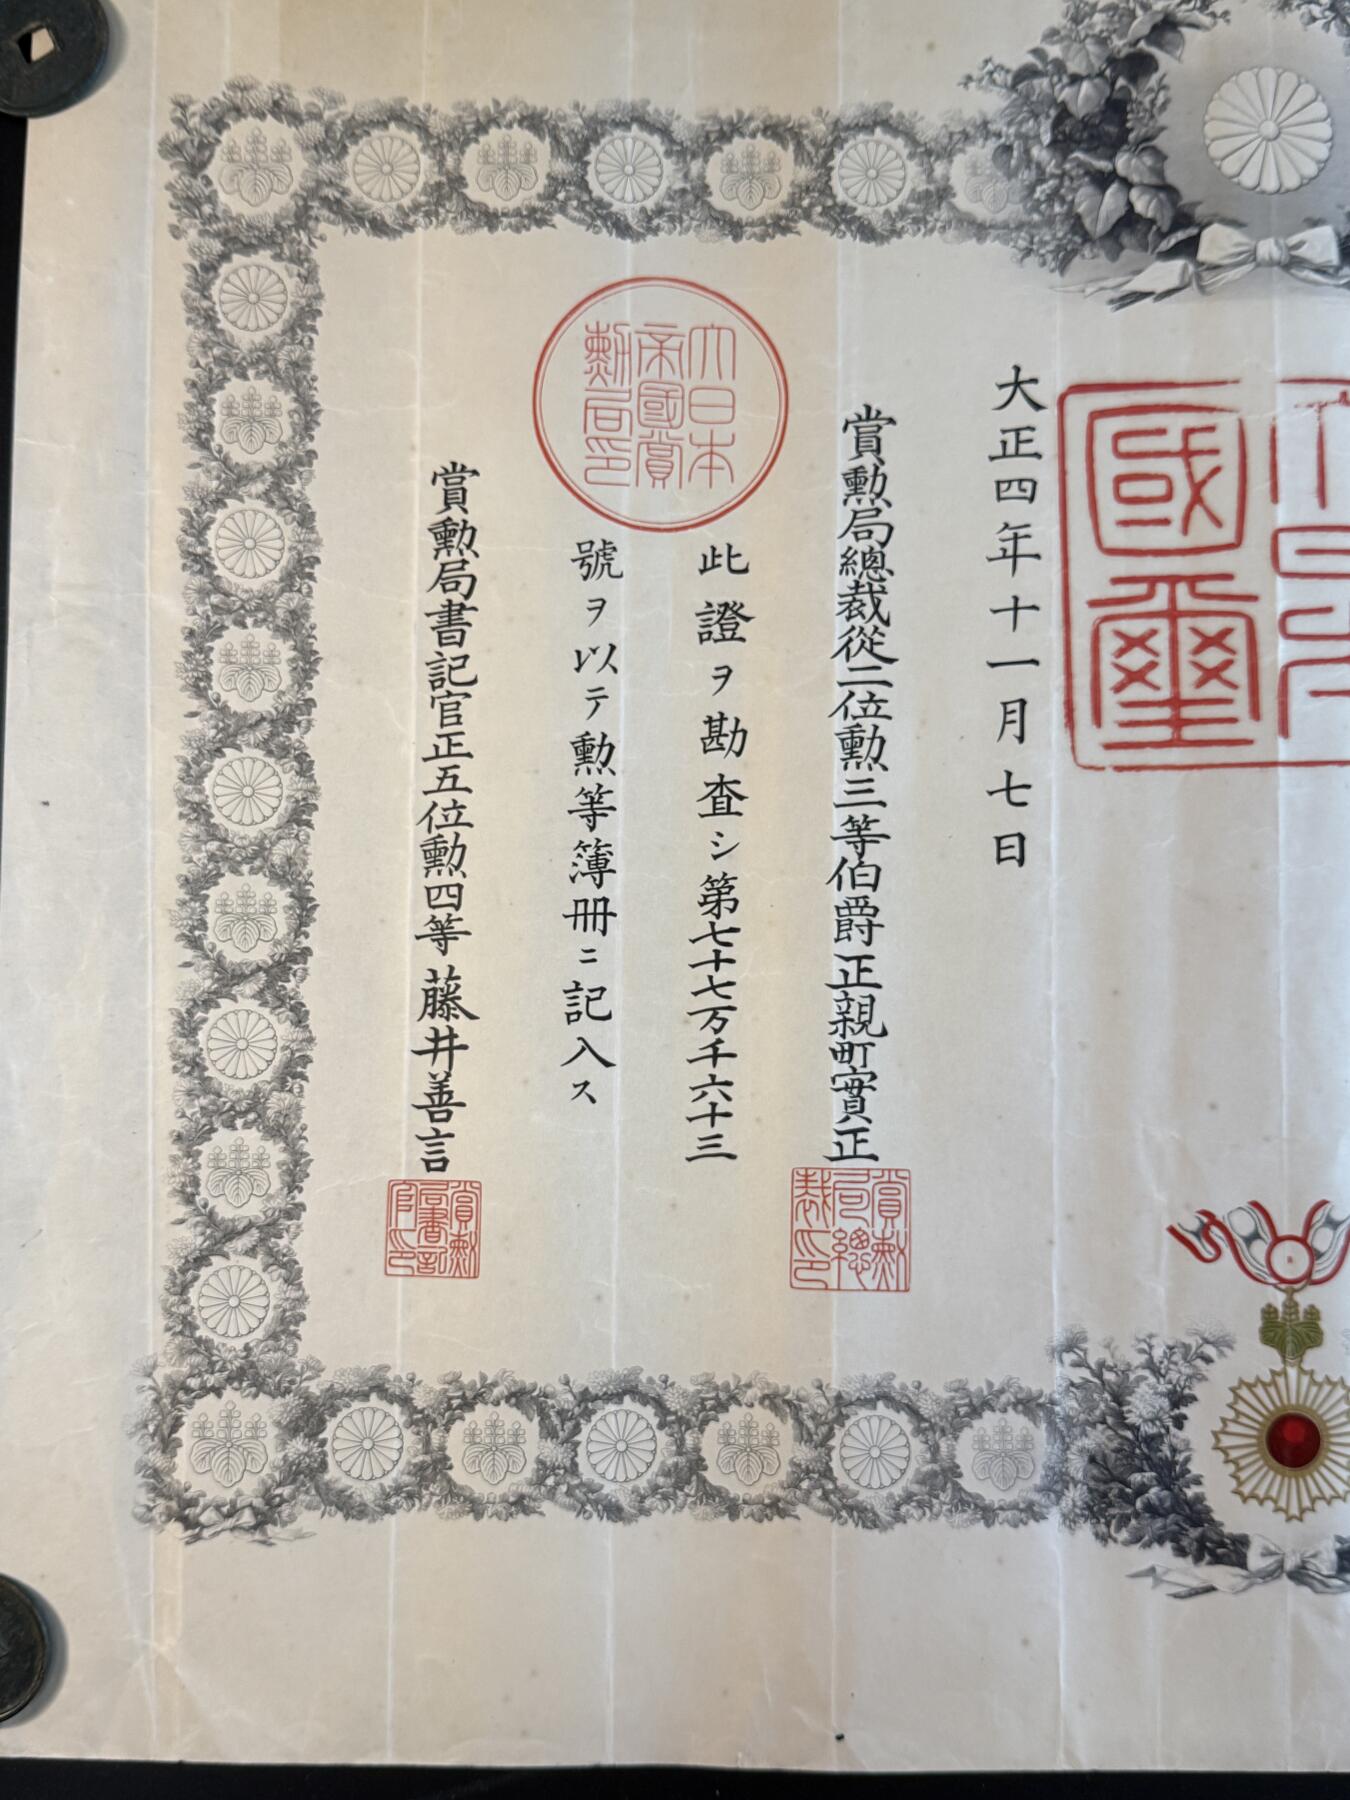 大正四年十一月七日
賞勲局總裁從二位勲三等伯爵正親町實正
賞勲局總裁印
此證ヲ勘査シ第七十七万千六十三
號ヲ以テ勲等簿冊ニ記入ス
大日本帝國賞勲局印
賞勲局書記官正五位勲四等藤井善言
賞勲局書記官印
國璽